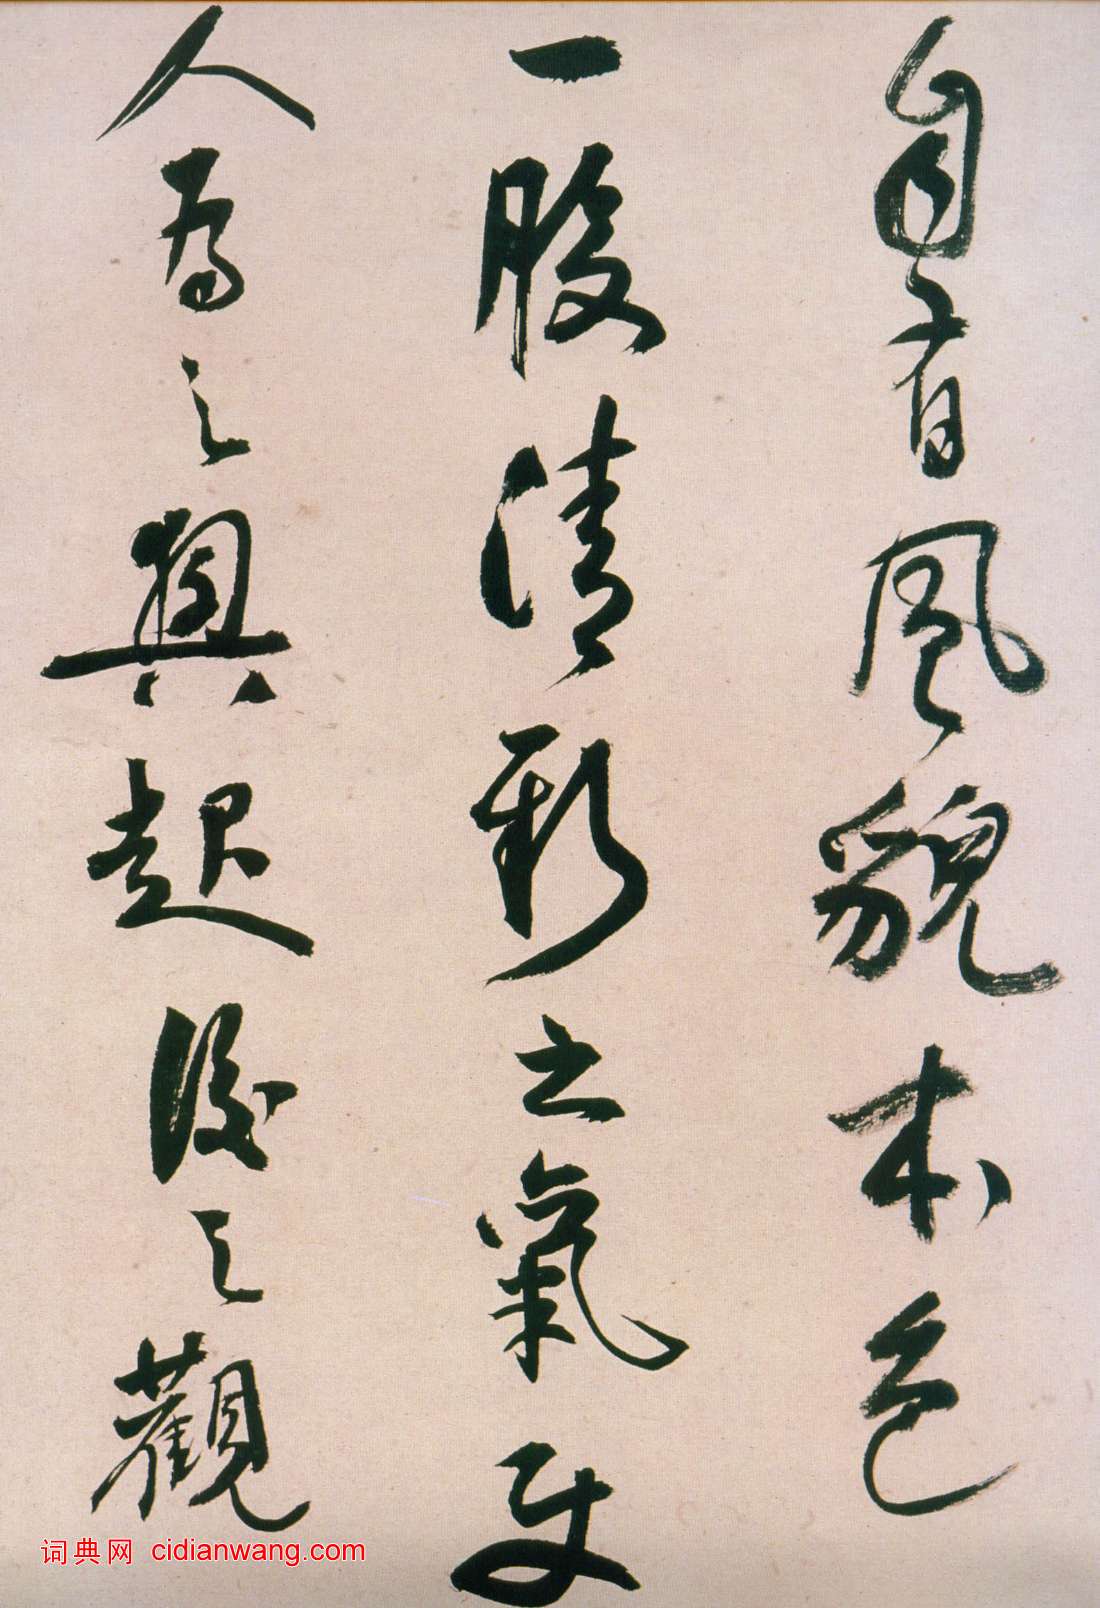 自有風貌本色
一股清新之氣使
人為之興起後之觀
词典网 cidianwang.com